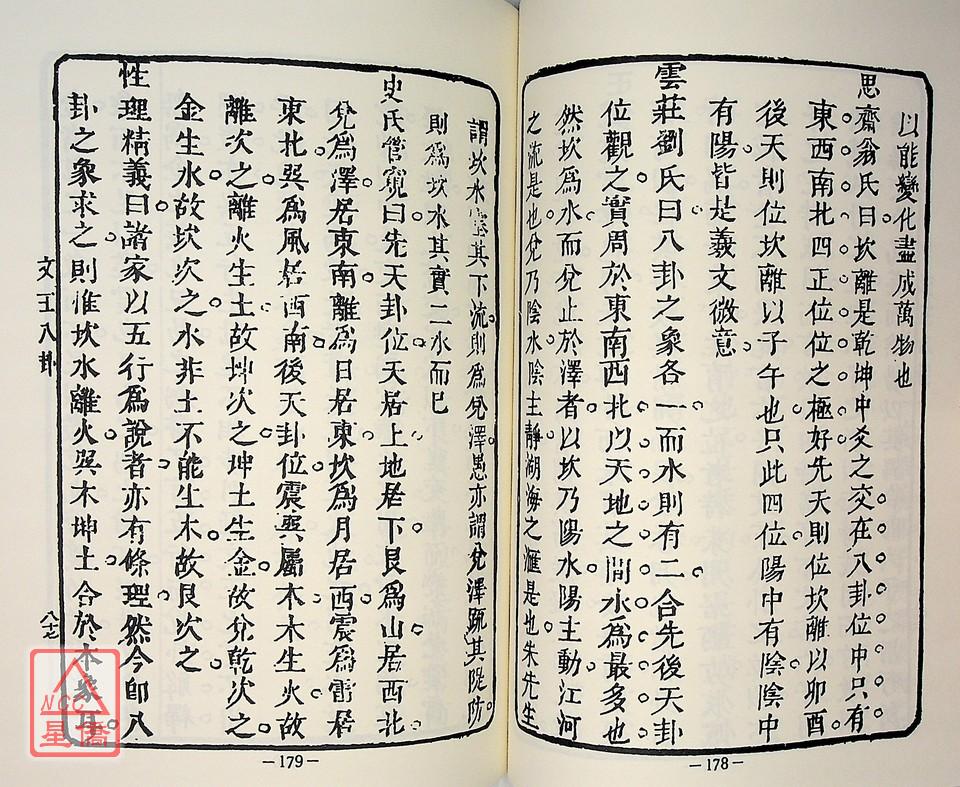 以能變化盡成萬物也
思齋翁氏曰坎離是乾坤中爻之交在八卦位中只有
東西南北四正位位之極好先天則位坎離以卯酉
後天則位坎離以子午也只此四位陽中有陰陰中
有陽皆是羲文微意
雲莊劉氏曰八卦之象各一而水則有二合先後天卦
位觀之實周於東南西北以天地之間水爲最多也
然坎爲水而兌止於澤者以坎乃陽水陽主動江河
之流是也兌乃陰水陰主靜湖海之滙是也朱先生
—178—
謂坎水塞其下流則爲兌澤愚亦謂兌澤疏其隄防
則爲坎水其實二水而已
史氏管窺曰先天卦位天居上地居下艮爲山居西北
兌爲澤居東南離爲日居東坎爲月居西震爲雷居
東北巽爲風居西南後天卦位震巽屬木木生火故
離次之離火生土故坤次之坤土生金故兌乾次之
金生水故坎次之水非土不能生木故艮次之
性理精義曰諸家以五行爲說者亦有條理然今卽八
卦之象求之則惟坎水離火巽木坤土合於本象
文王八卦
—179—
NCC
星僑